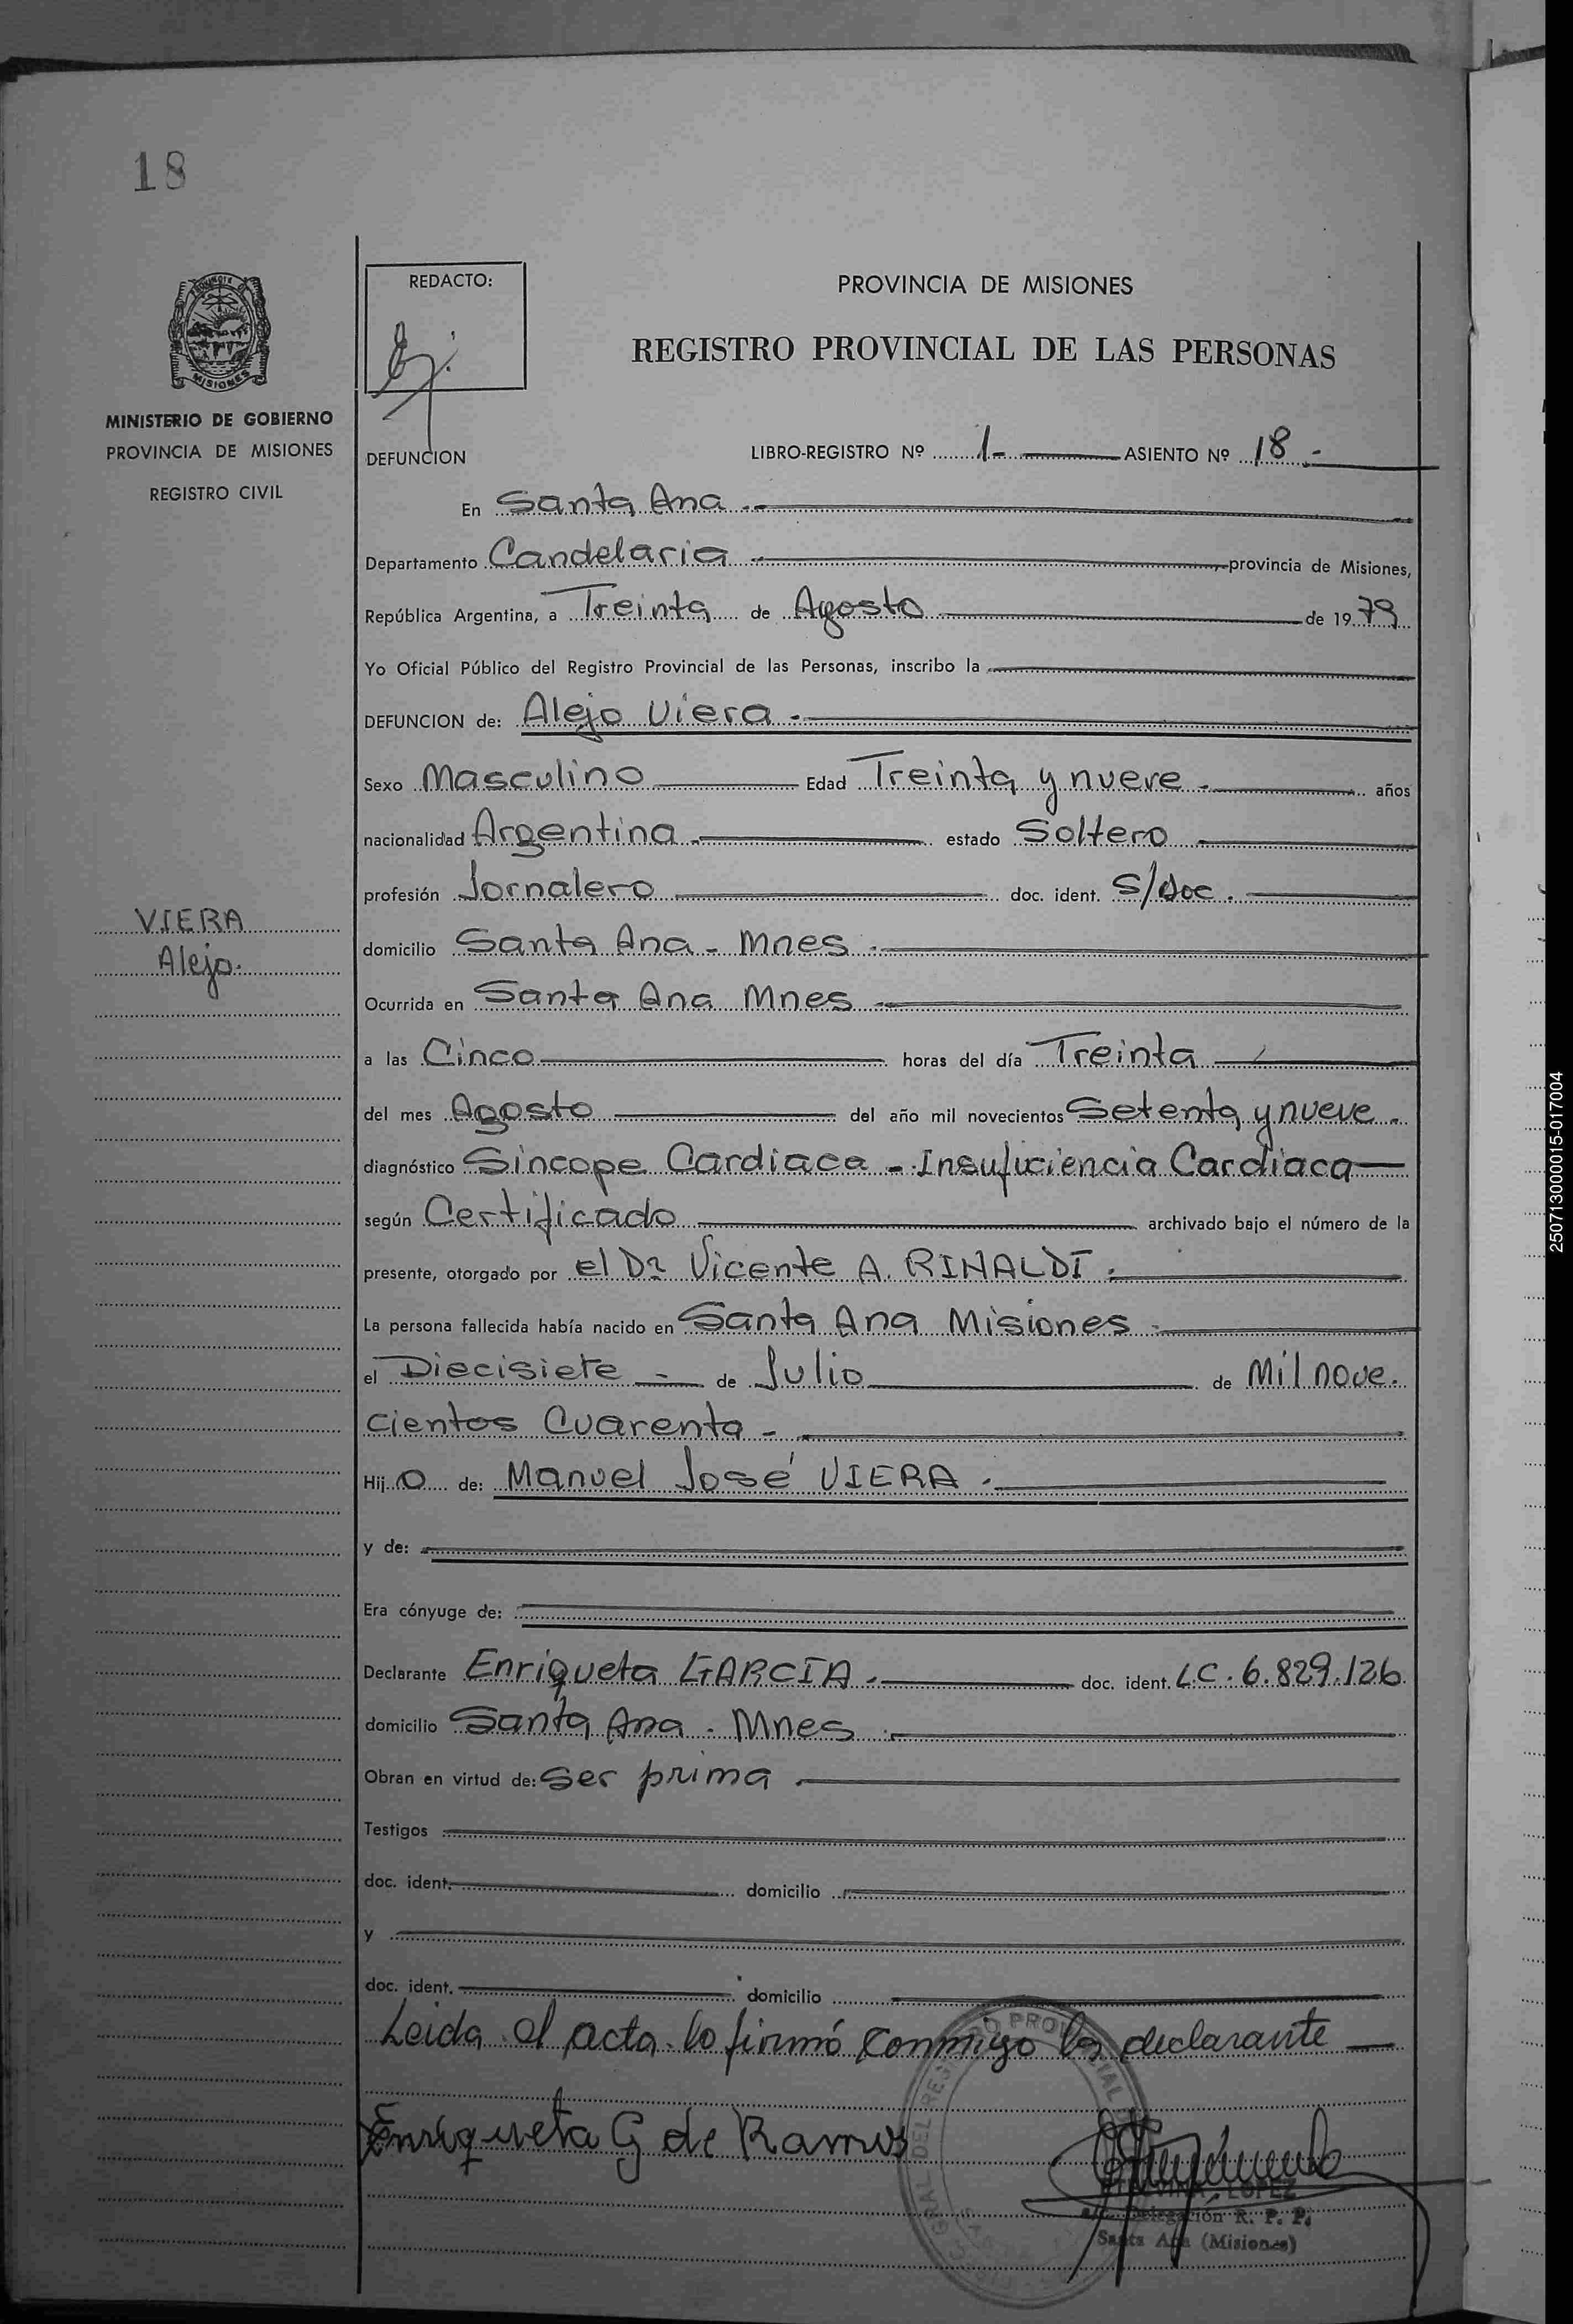 18
REDACTO:
PROVINCIA DE MISIONES
REGISTRO PROVINCIAL DE LAS PERSONAS
MISIONES
MINISTERIO DE GOBIERNO
PROVINCIA DE MISIONES
REGISTRO CIVIL
DEFUNCION LIBRO-REGISTRO Nº 1- ASIENTO Nº 18.-
En Santa Ana.-
Departamento Candelaria - provincia de Misiones,
República Argentina, a Treinta de Agosto de 1979
Yo Oficial Público del Registro Provincial de las Personas, inscribo la
DEFUNCION de: Alejo Viera.-
Sexo Masculino Edad Treinta y nueve.- años
nacionalidad Argentina.- estado Soltero
profesión Jornalero doc. ident. S/doc.
VIERA
Alejo.
domicilio Santa Ana - Mnes.-
Ocurrida en Santa Ana Mnes
a las Cinco horas del día Treinta
del mes Agosto del año mil novecientos Setenta y nueve.
diagnóstico Sincope Cardiaca - Insuficiencia Cardiaca
según Certificado archivado bajo el número de la
presente, otorgado por el Dr Vicente A. RINALDI.
La persona fallecida había nacido en Santa Ana Misiones
el Diecisiete - de Julio de Mil nove.
cientos Cuarenta -
Hijo de: Manuel José VIERA.
y de:
Era cónyuge de:
Declarante Enriqueta GARCIA.- doc. ident. L.C. 6.829.126
domicilio Santa Ana - Mnes
Obran en virtud de: Ser prima.
Testigos
doc. ident. domicilio
y
doc. ident. domicilio
Leida el acta lo firmó conmigo la declarante
Enriqueta G de Ramos
LOPEZ
Delegación R. P. P.
Santa Ana (Misiones)
2507130000015-017004